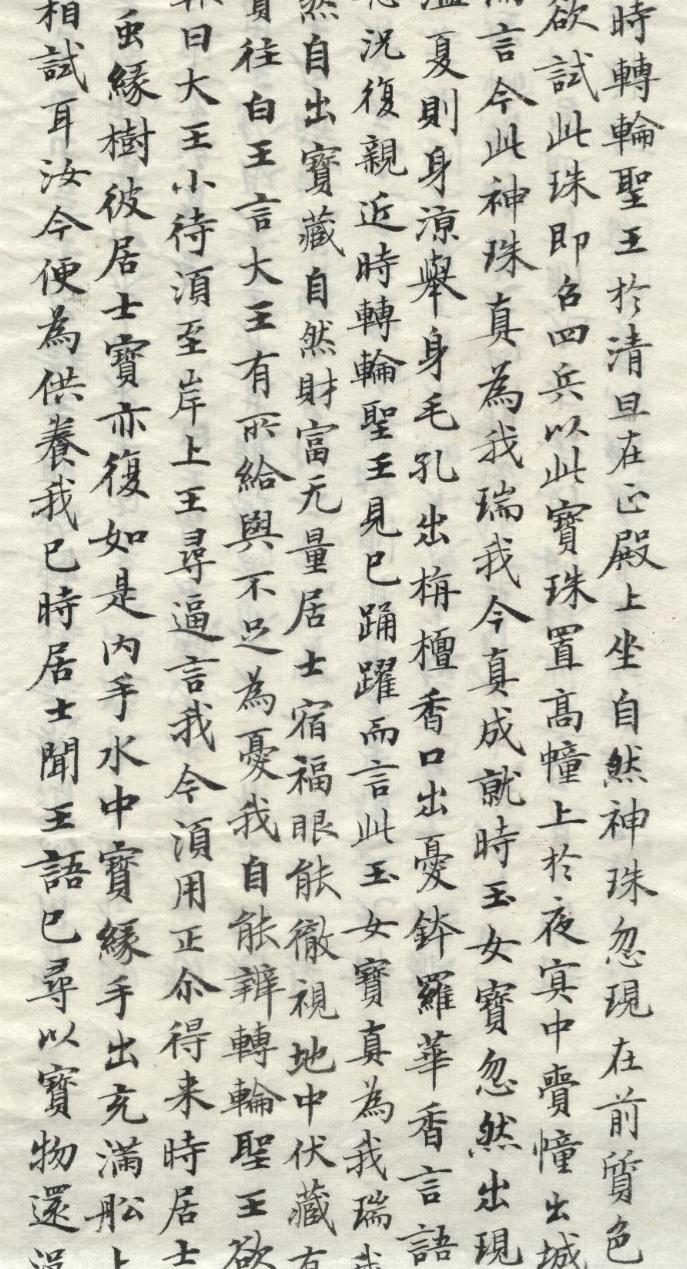 時轉輪聖王於清旦在正殿上坐自然神珠忽現在前質色
欲試此珠即召四兵以此寶珠置高幢上於夜寘中賷幢出城
言今此神珠真為我瑞我今真成就時玉女寶忽然出現
夏則身涼舉身毛孔出栴檀香口出憂鉢羅華香言語
況復親近時轉輪聖王見已踊躍而言此玉女寶真為我瑞
然自出寶藏自然財富无量居士宿福眼能徹視地中伏藏有
往白王言大王有所給與不足為憂我自能辦轉輪聖王欲
報曰大王小待須至岸上王尋逼言我今須用正尒得来時居士
虫緣樹彼居士寶亦復如是内手水中寶緣手出充滿舩上
相試耳汝今便為供養我已時居士聞王語已尋以寶物還